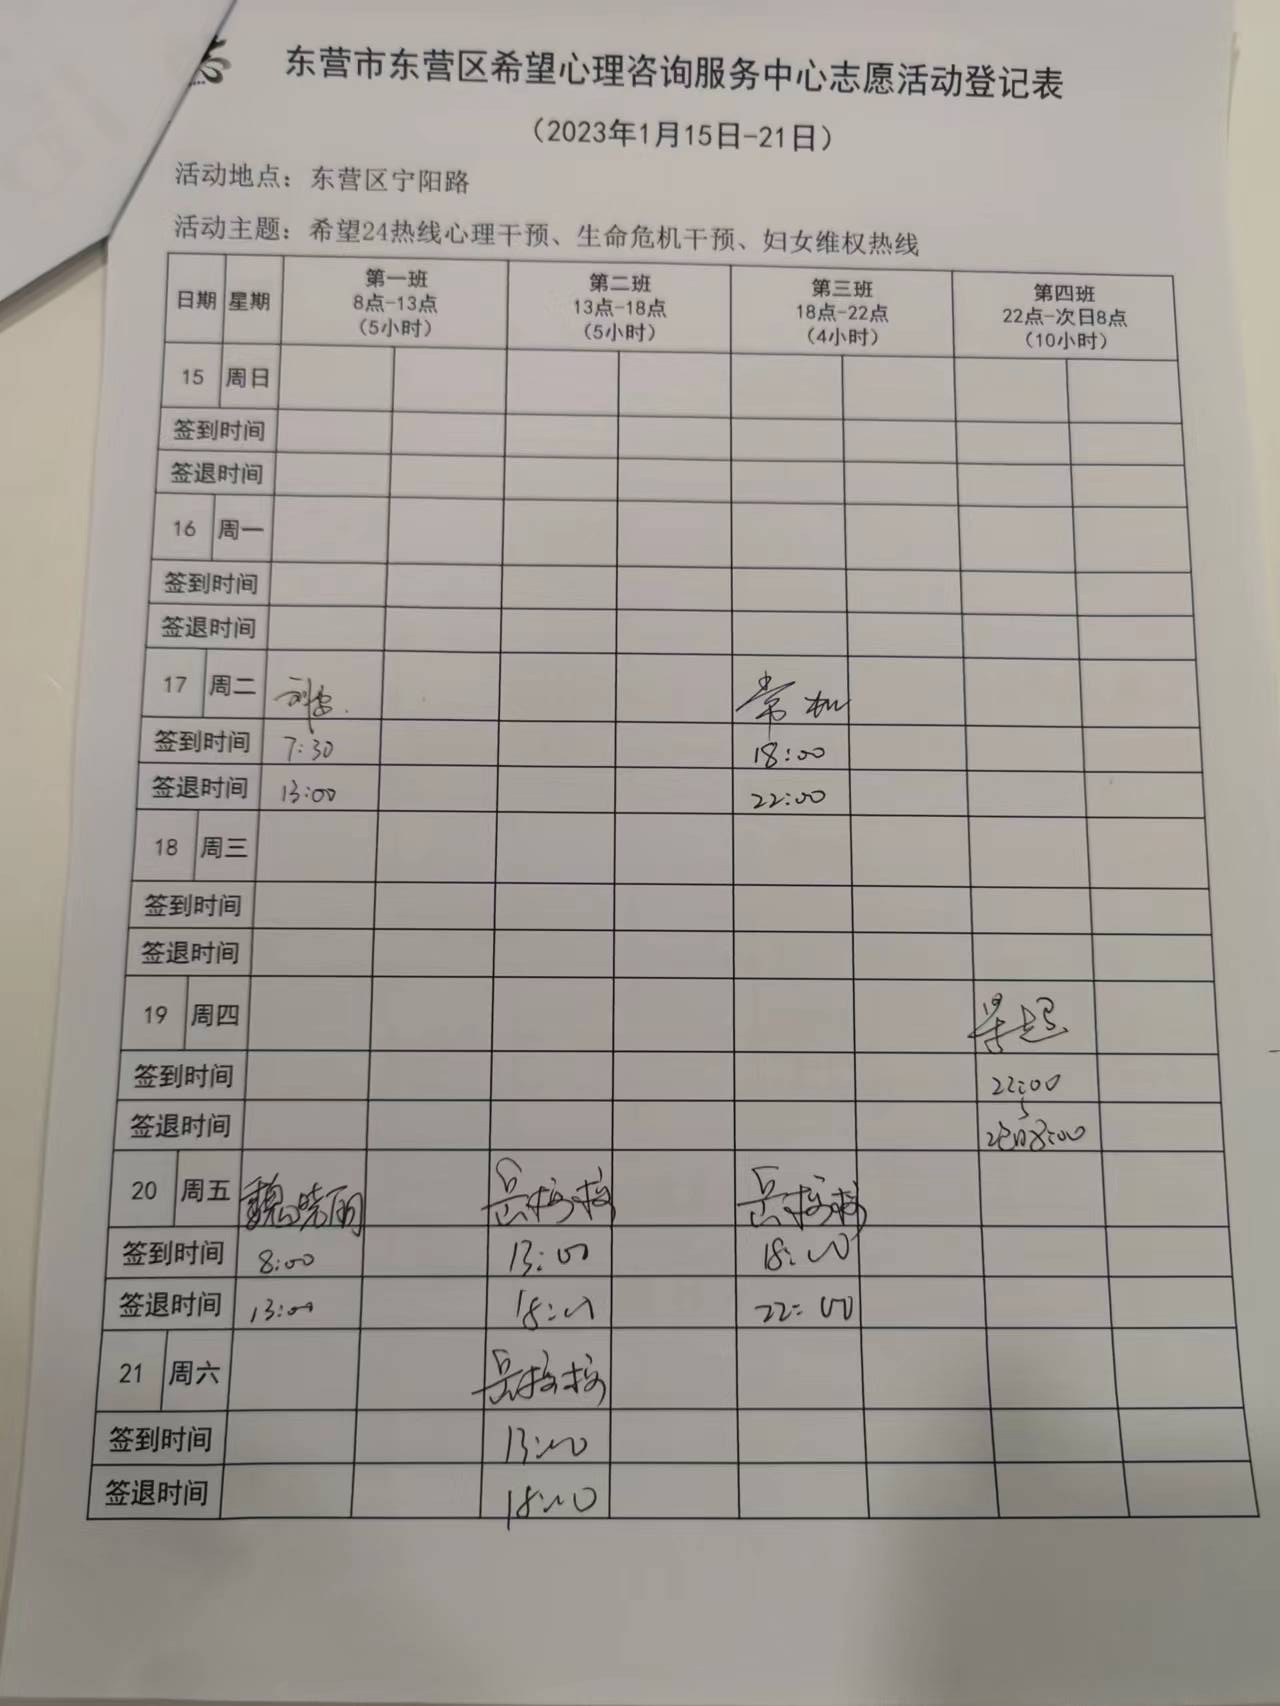 东营市东营区希望心理咨询服务中心志愿活动登记表
（2023年1月15日-21日）
活动地点：东营区宁阳路
活动主题：希望24热线心理干预、生命危机干预、妇女维权热线
日期 星期 第一班 8点-13点 （5小时） 第二班 13点-18点 （5小时） 第三班 18点-22点 （4小时） 第四班 22点-次日8点 （10小时）
15 周日
签到时间
签退时间
16 周一
签到时间
签退时间
17 周二 常
签到时间 7:30 18:00
签退时间 13:00 22:00
18 周三
签到时间
签退时间
19 周四
签到时间 22:00
签退时间 次日8:00
20 周五 魏晓丽
签到时间 8:00 13:00 18:00
签退时间 13:00 18:00 22:00
21 周六
签到时间 13:00
签退时间 18:00